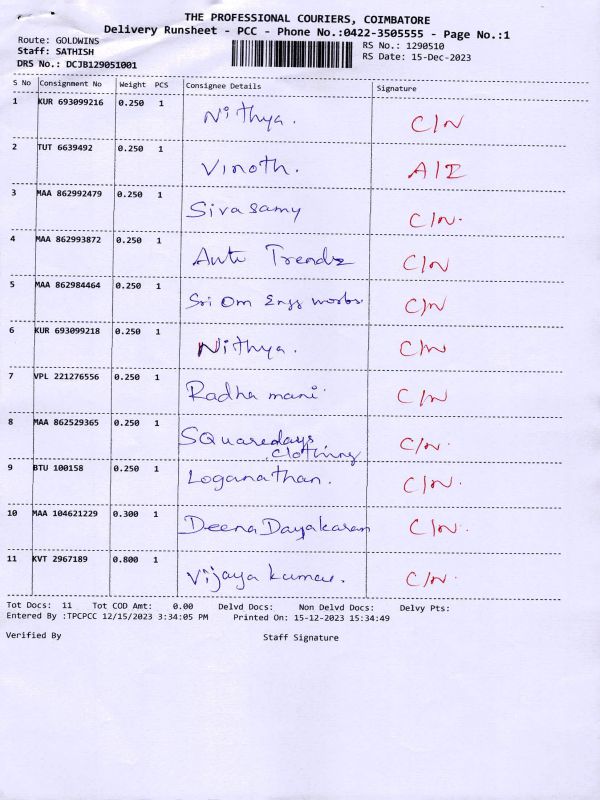 THE PROFESSIONAL COURIERS, COIMBATORE
Delivery Runsheet - PCC - Phone No.:0422-3505555 - Page No.:1
Route: GOLDWINS
Staff: SATHISH
DRS No.: DCJB129051001
RS No.: 1290510
RS Date: 15-Dec-2023
S No Consignment No Weight PCS Consignee Details Signature
1 KUR 693099216 0.250 1 Nithya. C/N
2 TUT 6639492 0.250 1 Vinoth. A/I
3 MAA 862992479 0.250 1 Sivasamy C/N.
4 MAA 862993872 0.250 1 Trendz C/N
5 MAA 862984464 0.250 1 Sri Om Engg works. C/N
6 KUR 693099218 0.250 1 Nithya. C/N
7 VPL 221276556 0.250 1 Radha mani C/N
8 MAA 862529365 0.250 1 SQuaredays C/N.
clothing
9 BTU 100158 0.250 1 Loganathan. C/N.
10 MAA 104621229 0.300 1 Deena Dayakaran C/N.
11 KVT 2967189 0.800 1 Vijaya kumar. C/N.
Tot Docs: 11 Tot COD Amt: 0.00 Delvd Docs: Non Delvd Docs: Delvy Pts:
Entered By :TPCPCC 12/15/2023 3:34:05 PM Printed On: 15-12-2023 15:34:49
Verified By Staff Signature